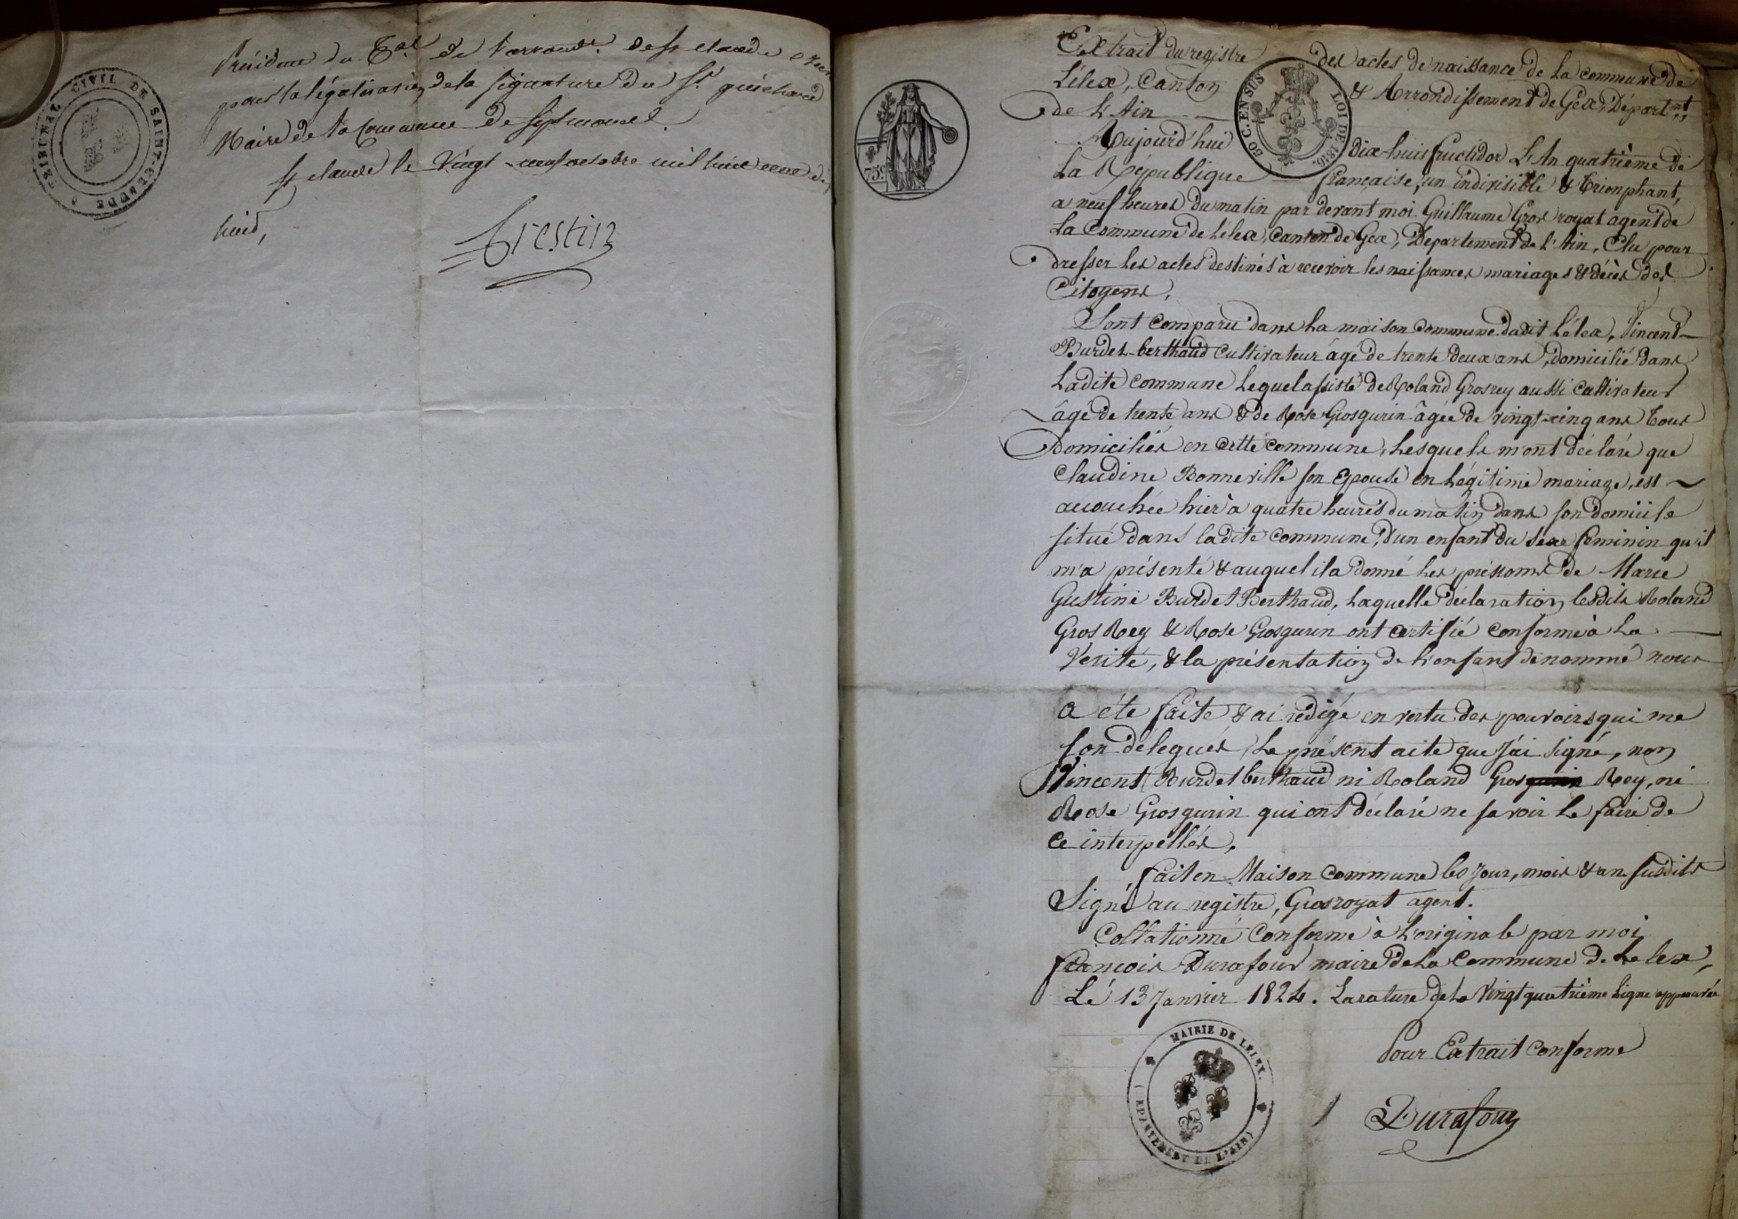 Président du Tal de l'arrondt. de St claude
pour la légalisation de la signature du Sr. guichard
Maire de la Commune de Septmoncel.
St claude le Vingt-neuf octobre mil huit cent
huit,
Crestin
TRIBUNAL CIVIL DE SAINT-CLAUDE
Extrait du registre des actes de naissance de la commune de
Lélex, Canton & Arrondissement de Géx, Départnt
de L'Ain
75c
60 C. EN SUS LOI DE 1816.
Aujourd'hui Dix-huit fructidor L'An quatrième de
La République française, un indivisible & triomphant,
a neuf heures du matin par devant moi Guillaume Gros royat agent de
La Commune de Lelex, Canton de Gex, Département de l'Ain, Elu pour
dresser les actes destinés à recevoir les naissances mariages & décès des
Citoyens,
Sont comparu dans La maison commune dudit Lélex, Vincent
Burdet-berthaud cultivateur âgé de trente deux ans, domicilié dans
Ladite commune Lequel assisté de Roland Grosrey aussi cultivateur
âgé de trente ans & de Rose Grosgurin âgée de vingt-cinq ans tous
Domiciliés en cette commune, Lesquels m'ont déclaré que
Claudine Bonneville son Epouse en Légitime mariage, est
accouchée hier à quatre heures du matin dans son domicile
situé dans ladite commune, d'un enfant du sexe feminin qu'il
m'a présenté & auquel il a donné les prénoms de Marie
Gustine Burdet Berthaud, Laquelle déclaration lesdits Roland
Gros Rey & Rose Grosgurin ont certifié conforme à La
Verité, & la présentation de L'enfant dénommé nous
a été faite & ai rédigé en vertu des pouvoirs qui me
son délegués, Le présent acte que j'ai signé, non
Vincent Burdet berthaud ni Roland Gros Rey, ni
Rose Grosgurin qui ont déclaré ne savoir le faire de
ce interpellés.
fait en Maison commune les jour, mois & an susdits
Signé au registre, Grosroyat agent.
Collationné conforme à L'originale par moi
françois Durafour maire de La Commune de Lelex,
Lé 13 Janvier 1824. La rature de la Vingt quatrième Ligne approuvée
Pour Extrait conforme
Durafour
MAIRIE DE LELEX.
(DÉPARTEMENT DE L'AIN)